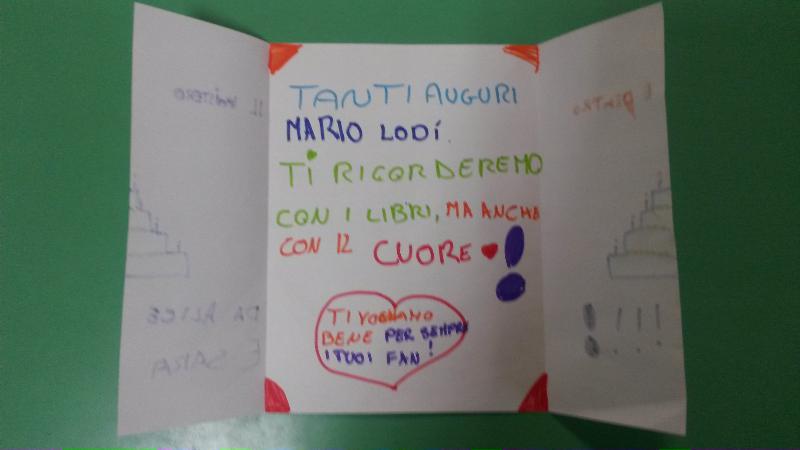 TANTI AUGURI
MARIO LODI.
TI RICORDEREMO
CON I LIBRI, MA ANCHE
CON IL CUORE !
TI VOGLIAMO
BENE PER SEMPRE
I TUOI FAN!
IL MISTERO
È DENTRO
DA ALICE
E SARA
!!!!